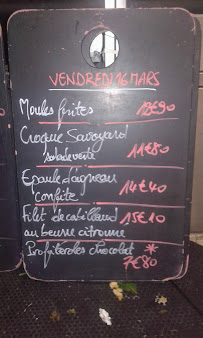 VENDREDI 16 MARS
Moules frites 13€90
Croque Savoyard
salade verte 11€80
Epaule d'agneau
confite 14€40
Filet de cabillaud 15€10
au beurre citronné
Profiteroles chocolat *
7€80